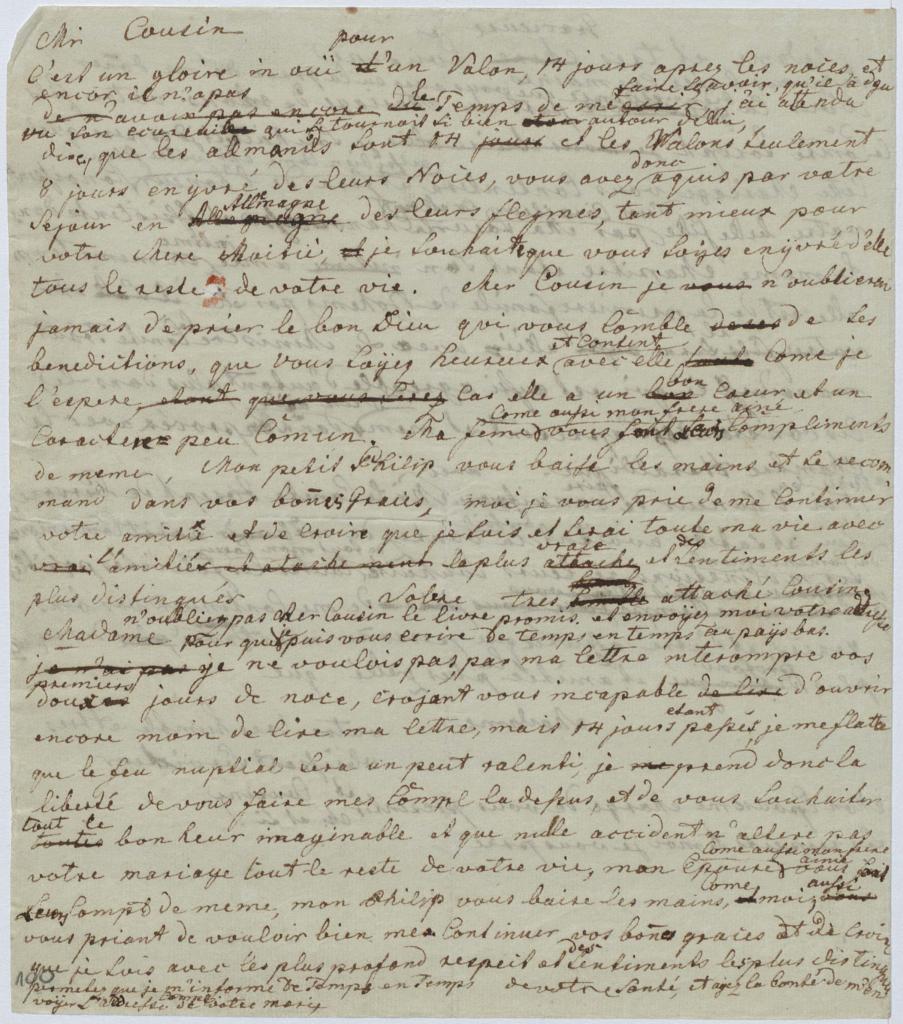 Mr Cousin
pour
C'est un gloire in ouï d'un Valon, 14 jours apres les noies, et
encor il n'a pas faire scavoir, qu'il a
de n'avoir pas encore le Temps de me j'ai attendu
vu son qui tournoit si bien autour de lui,
que les allmands sont 14 jours et les Valons seulement
donc
8 jours enyvré des leurs Noies, vous avez aquis par vœtre
Allmagne
sejour en Allmagne des leurs flegmes, tant mieux pour
votre chere Moitié, et je souhaite que vous soiyes enyvré d'elle
tous le reste de votre vie. cher Cousin je vous n'oublierai
jamais de prier le bon Dieu qui vous comble de ses
et content
benedictions, que vous soiyes heureux avec elle tout come je
bon
l'espere, etant que vous serez car elle a un bon Coeur et un
come aussi mon frere ainé
Caractere peu Comun. Ma feme vous font leurs Compliments
de meme, Mon petit Philip vous baise les mains et se recom
mand dans vos bones Graces, moi je vous prie de me Continuer
votre amitié et de croire que je suis et serai toute ma vie avec
vraie des
vrai l'amitiés et atachement la plus attaché et sentiments les
plus distingués Votre tres attaché Cousin
n'oubliez pas cher Cousin le livre promis, et envoyez moi votre adresse
Madame pour que je puis vous ecrire de temps en temps au pays bas.
je n'ai pas je ne voulois pas, par ma lettre interompre vos
premiers
doux jours de noce, croyant vous incapable de lire d'ouvrir
etant
encore moin de lire ma lettre, mais 14 jours passés, je me flatte
que le feu nuptial sera un peut ralenti, je me prend donc la
liberté de vous faire mes Compl la dessus, et de vous souhaiter
tout le
toutes bonheur imaginable et que nulle accident n'altere pas
come aussi mon frere
votre mariage tout le reste de votre vie, mon Epouse ainé vous font
come aussi
leurs Compts de meme, mon Philip vous baise les mains, et moi vous
vous priant de vouloir bien me Continuer vos bones graces et de Croire
des
que je suis avec les plus profond respect et sentiments les plus distingu
permetez que je m'informe de Temps en Temps de votre santé, et ayez la bonté de m'en
voyer l'adresse de votre marie
100